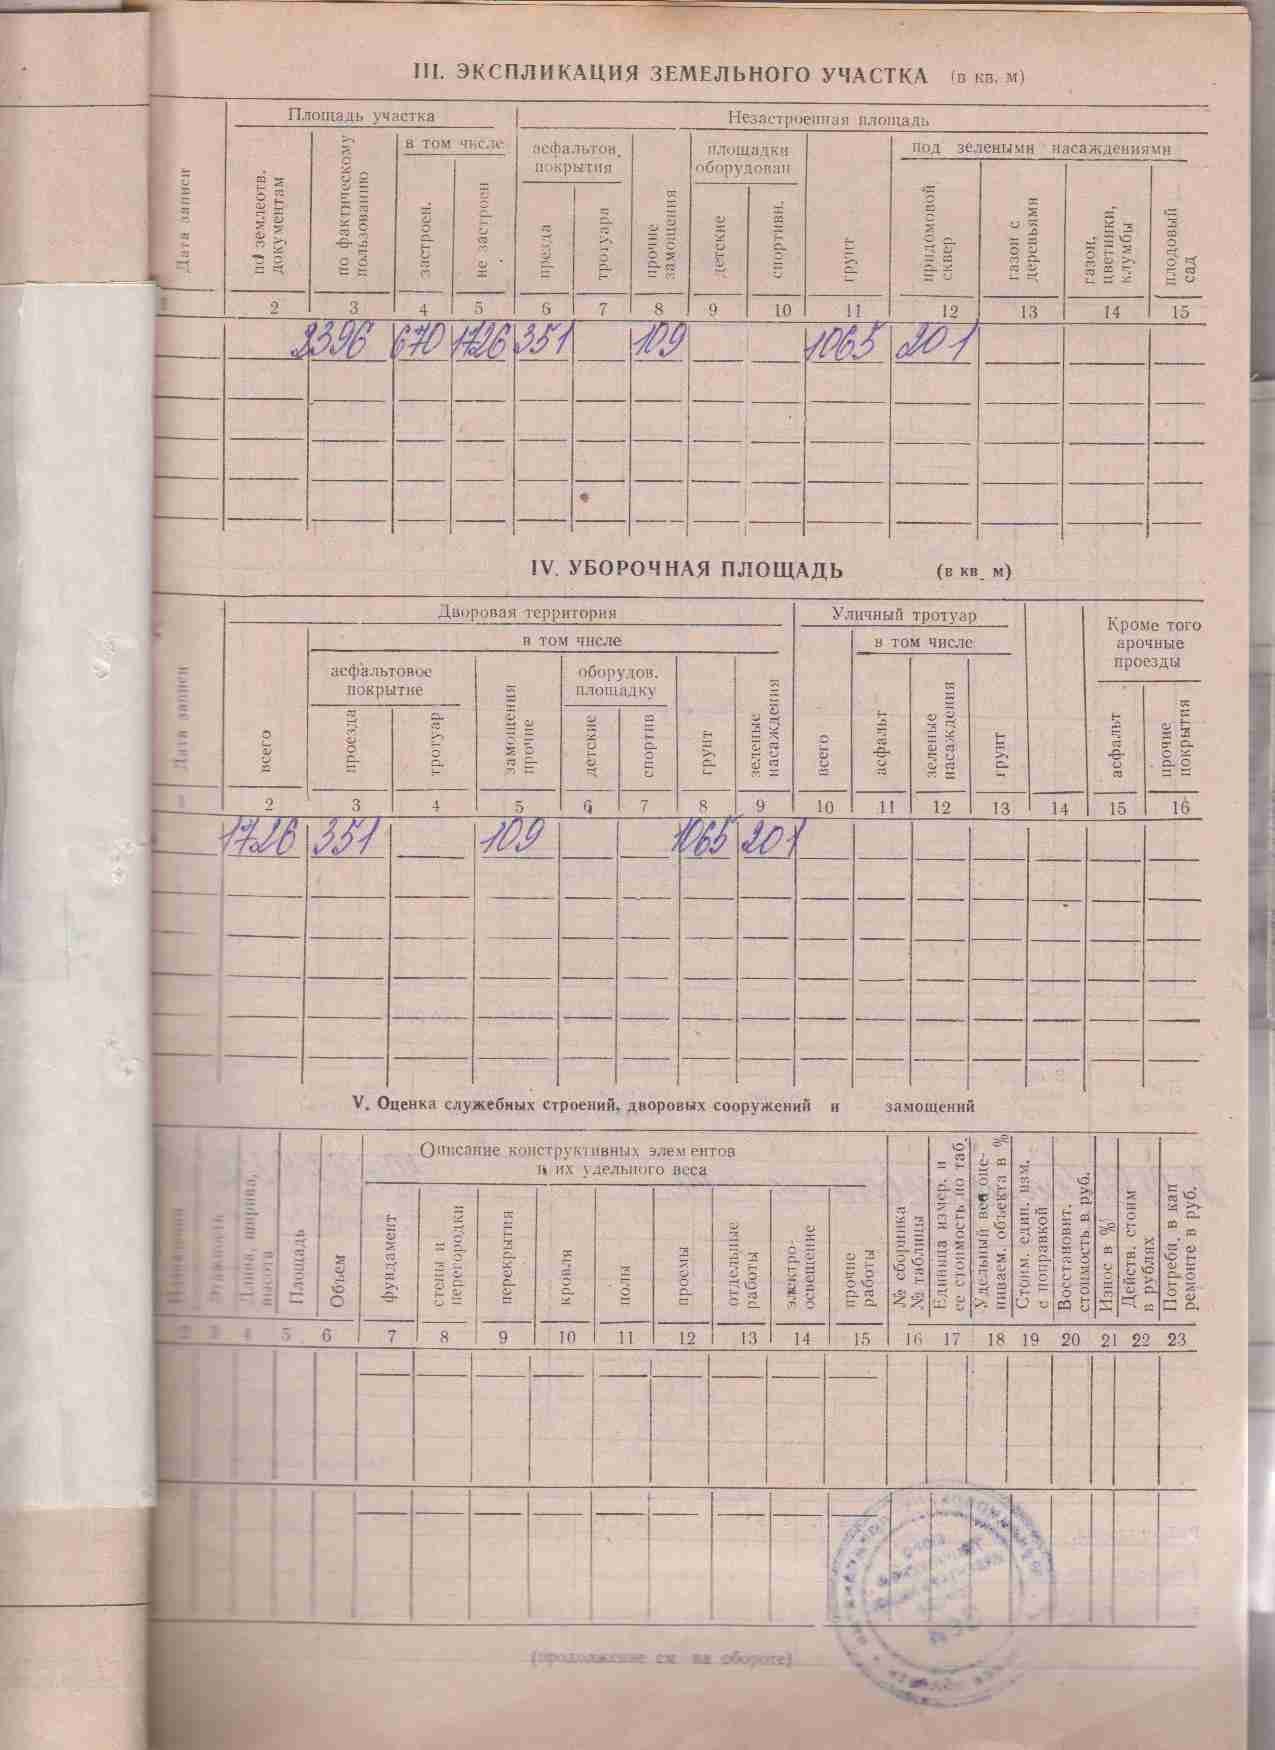 III. ЭКСПЛИКАЦИЯ ЗЕМЕЛЬНОГО УЧАСТКА (в кв. м)
Площадь участка Незастроенная площадь
в том числе асфальтов. покрытия площадки оборудован под зелеными насаждениями
Дата записи по землеотв. документам по фактическому пользованию застроен. не застроен презда тротуара прочие замощения детские спортивн. грунт придомовой сквер газон с деревьями газон, цветники, клумбы плодовый сад
1 2 3 4 5 6 7 8 9 10 11 12 13 14 15
2396 670 1726 351 109 1065 201
IV. УБОРОЧНАЯ ПЛОЩАДЬ (в кв. м)
Дворовая территория Уличный тротуар Кроме того арочные проезды
в том числе в том числе
асфальтовое покрытие оборудов. площадку
Дата записи всего проезда тротуар замощения прочие детские спортив грунт зеленые насаждения всего асфальт зеленые насаждения грунт асфальт прочие покрытия
1 2 3 4 5 6 7 8 9 10 11 12 13 14 15 16
1726 351 109 1065 201
V. Оценка служебных строений, дворовых сооружений и замощений
Описание конструктивных элементов и их удельного веса
Этажность Длина, ширина, высота Площадь Объем фундамент стены и перегородки перекрытия кровля полы проемы отдельные работы электро-освещение прочие работы № сборника № таблицы Единица измер. и ее стоимость по таб. Удельный вес оце-ниваем. объекта в % Стоим. един. изм. с поправкой Восстановит. стоимость в руб. Износ в % Действ. стоим в рублях Потребн. в кап ремонте в руб.
2 3 4 5 6 7 8 9 10 11 12 13 14 15 16 17 18 19 20 21 22 23
(продолжение см. на обороте)